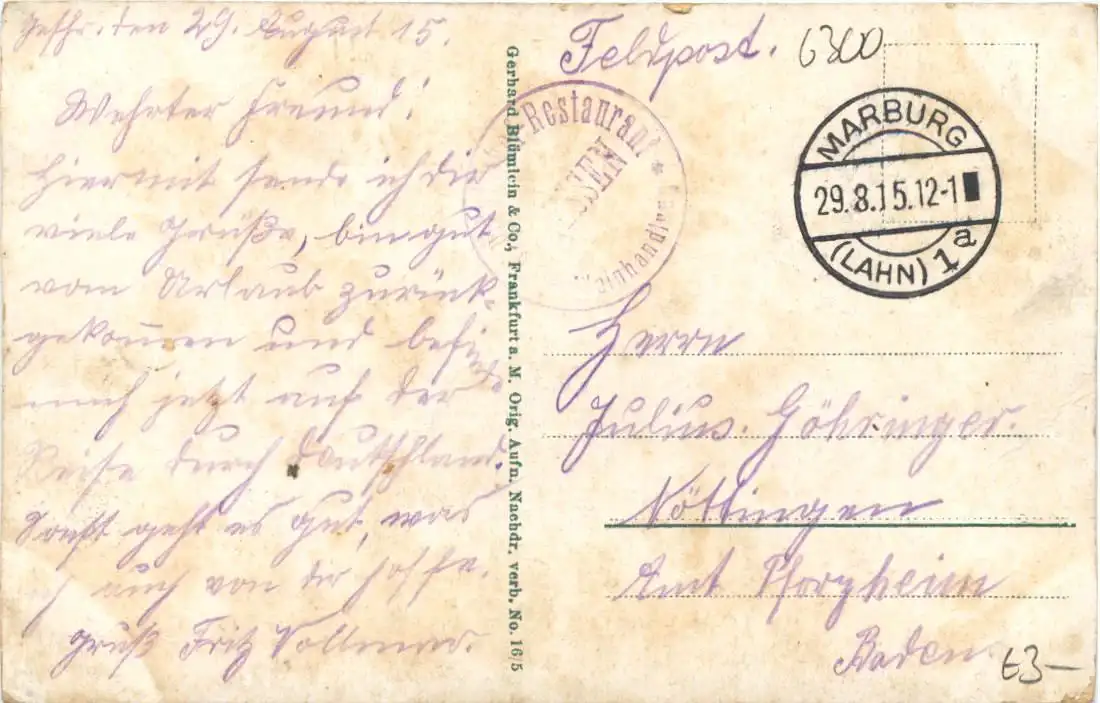 Geschr. den 29. August 15.
Wehrter Freund!
Hiermit sende ich dir
viele Grüße, bin gut
vom Urlaub zurück-
gekommen und befinde
mich jetzt auf der
Reise durch Deutschland.
Sonst geht es gut, was
ich auch von dir hoffe.
Gruß Fritz Vollmer.
Gerhard Blümlein & Co., Frankfurt a. M. Orig. Aufn. Nachdr. verb. No. 16/5
Feldpost. 6300
Restaurant *
Weinhandlung
MARBURG
29.8.15.12-1
(LAHN) 1a
Herrn
Julius. Göhringer.
Nöttingen
Amt Pforzheim
Baden.
63-